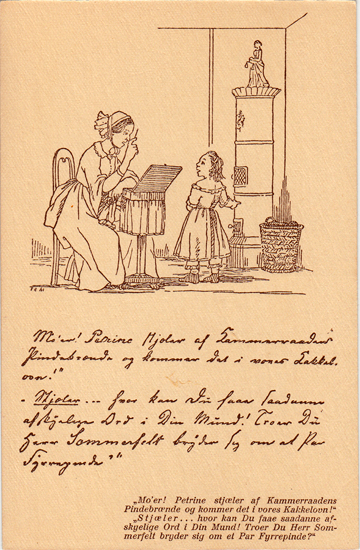 Mo'er! Petrine stjæler af Kammerraadens
Pindebrænde og kommer det i vores Kakkel-
ovn!"
- Stjæler... hvor kan Du faae saadanne
afskyelige Ord i Din Mund! Troer Du
Herr Sommerfelt bryder sig om et Par
Fyrrepinde?"
„Mo'er! Petrine stjæler af Kammerraadens
Pindebrænde og kommer det i vores Kakkelovn!"
„Stjæler... hvor kan Du faae saadanne af-
skyelige Ord i Din Mund! Troer Du Herr Som-
merfelt bryder sig om et Par Fyrrepinde?"